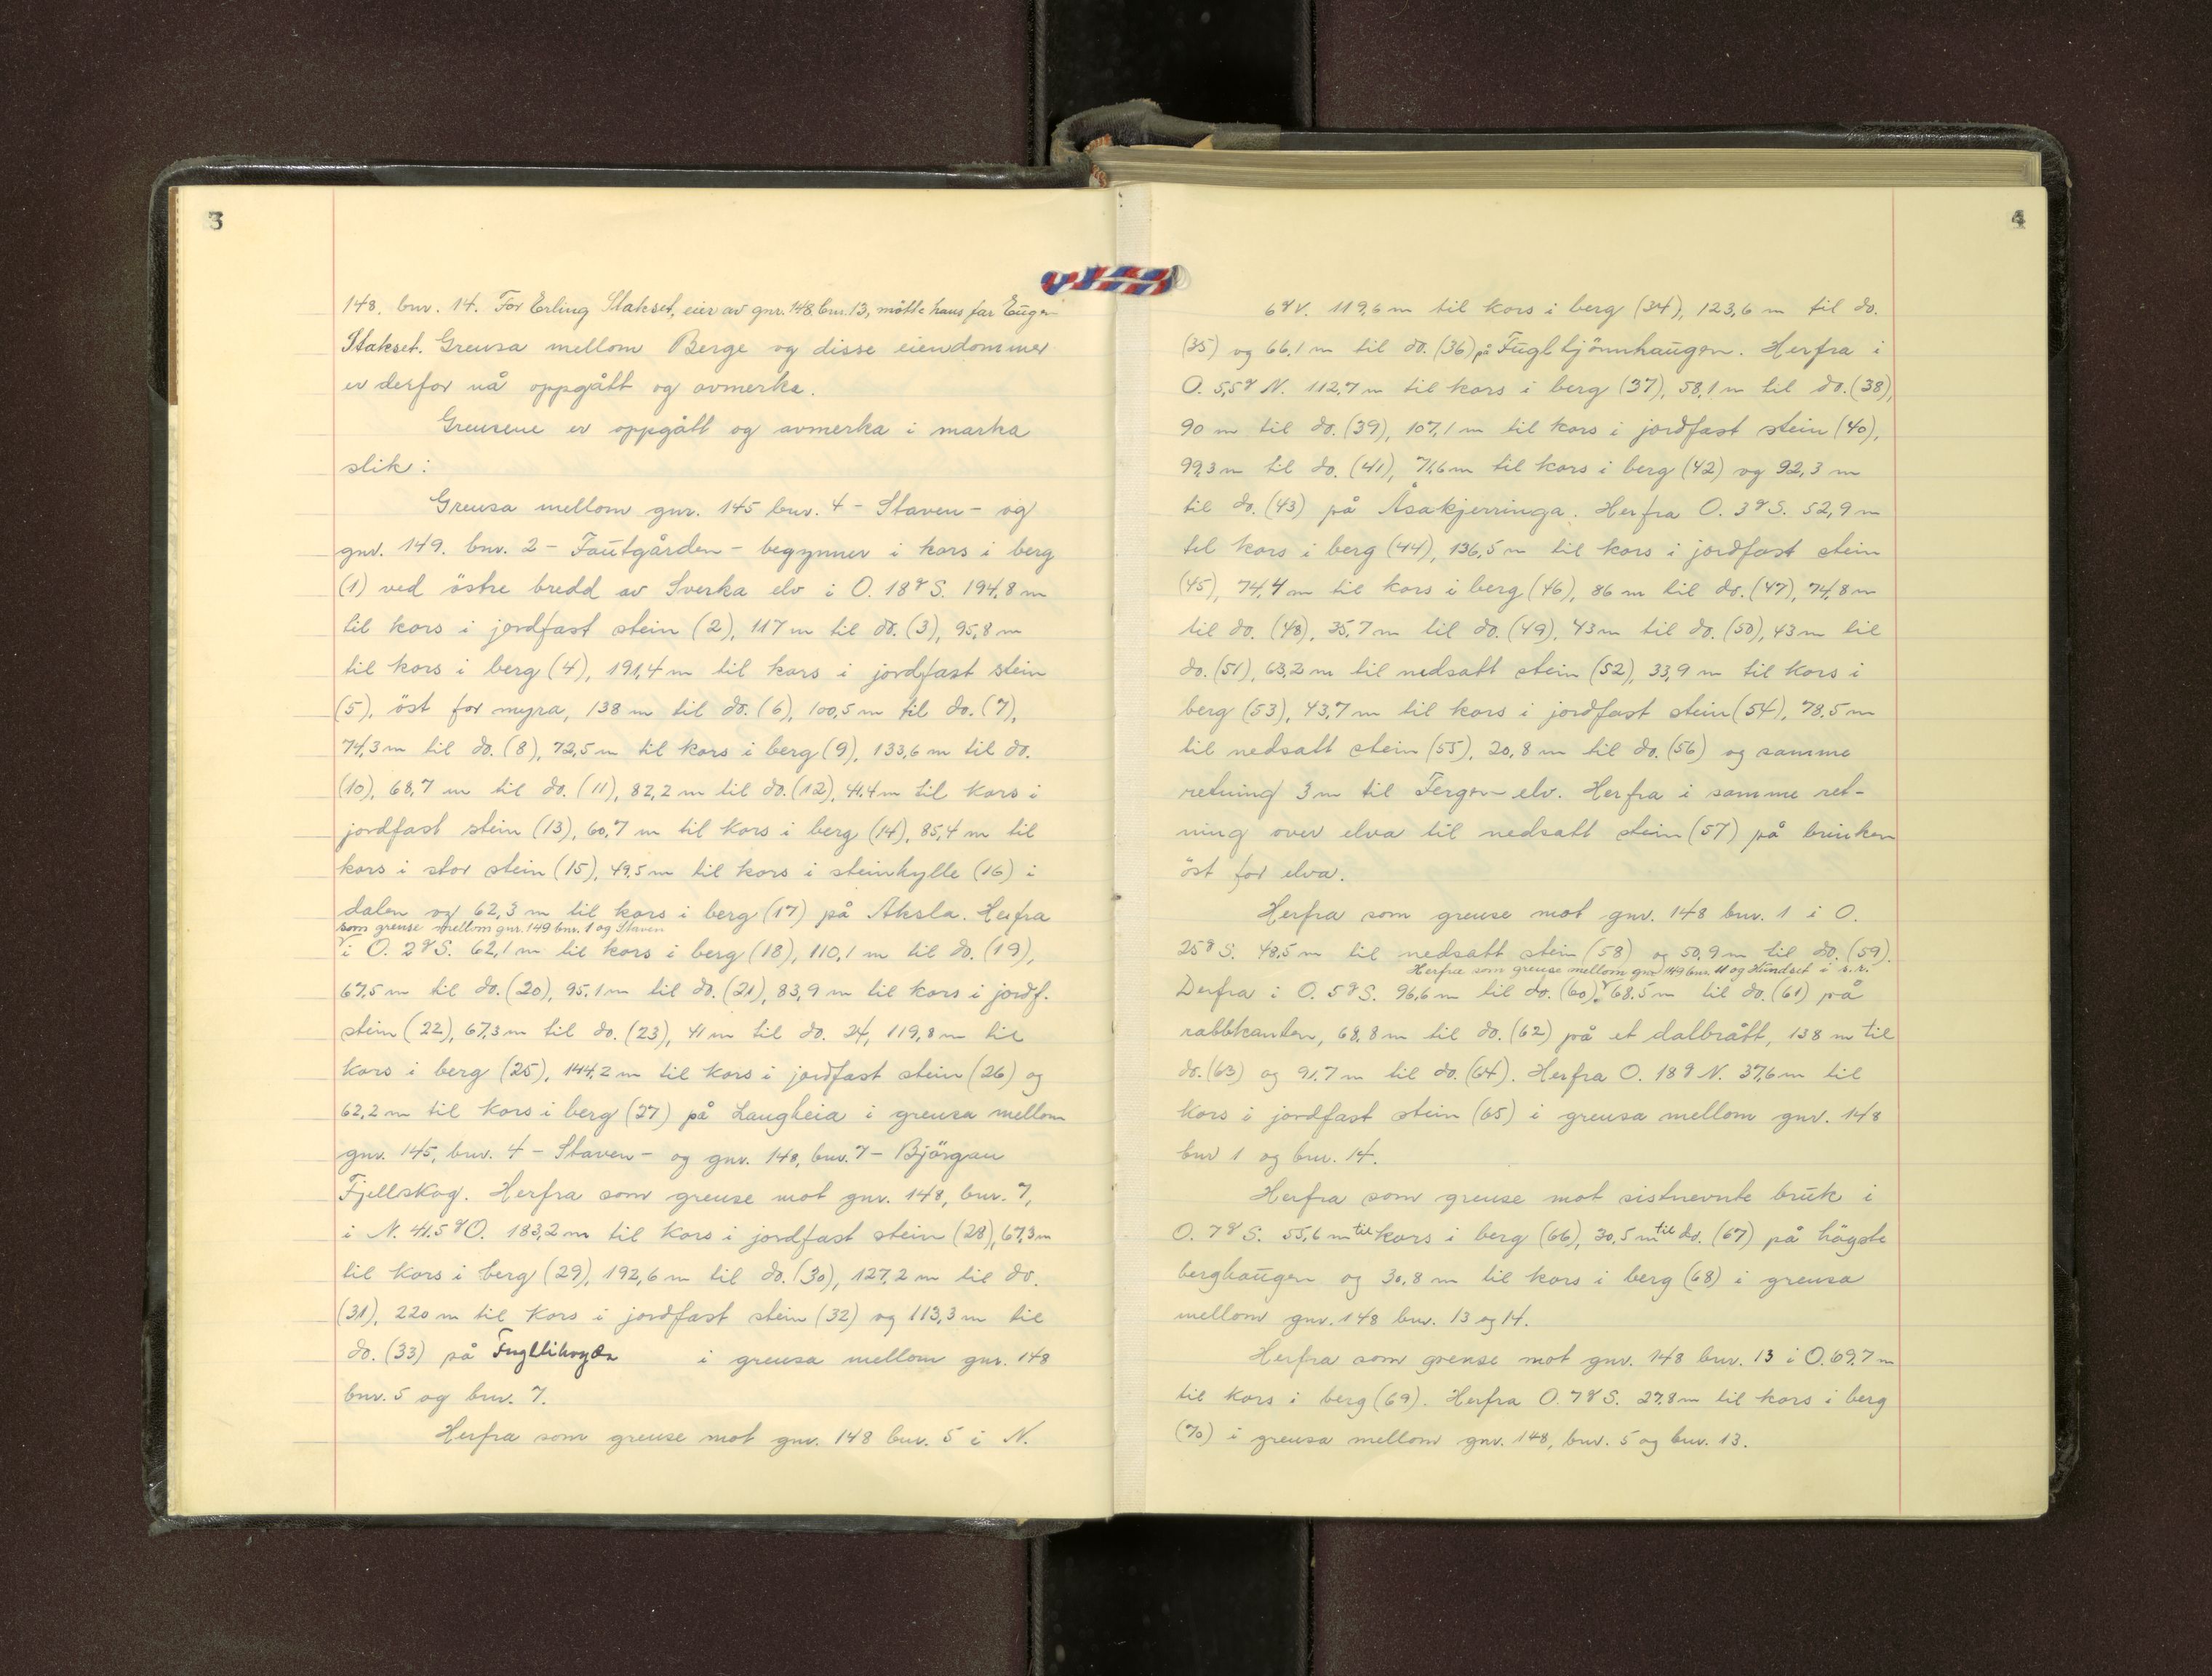 3
148, bnr. 14. For Erling Stakset, eier av gnr. 148 bnr. 13, møtte hans far Eugen
Stakset. Grensa mellom Berge og disse eiendommer
er derfor nå oppgått og avmerka.
Grensene er oppgått og avmerka i marka
slik:
Grensa mellom gnr. 145 bnr. 4 - Staven - og
gnr. 149. bnr. 2 - Fautgården - begynner i kors i berg
(1) ved östre bredd av Sverka elv i O. 18g S. 194,8 m
til kors i jordfast stein (2), 117 m til do. (3), 95,8 m
til kors i berg (4), 191,4 m til kors i jordfast stein
(5), öst for myra, 138 m til do. (6), 100,5 m til do. (7),
74,3 m til do. (8), 72,5 m til kors i berg (9), 133,6 m til do.
(10), 68,7 m til do. (11), 82,2 m til do. (12), 41,4 m til kors i
jordfast stein (13), 60,7 m til kors i berg (14), 85,4 m til
kors i stor stein (15), 49,5 m til kors i steinhylle (16) i
dalen og 62,3 m til kors i berg (17) på Aksla. Herfra
som grense mellom gnr. 149 bnr. 1 og Staven
i O. 2g S. 62,1 m til kors i berg (18), 110,1 m til do. (19),
67,5 m til do. (20), 95,1 m til do. (21), 83,9 m til kors i jordf.
stein (22), 67,3 m til do. (23), 41 m til do. 24, 119,8 m til
kors i berg (25), 144,2 m til kors i jordfast stein (26) og
62,2 m til kors i berg (27) på Langheia i grensa mellom
gnr. 145, bnr. 4 - Staven - og gnr. 148, bnr. 7 - Björgan
Fjellskog. Herfra som grense mot gnr. 148, bnr. 7,
i N. 41,5g O. 183,2 m til kors i jordfast stein (28), 67,3 m
til kors i berg (29), 192,6 m til do. (30), 127,2 m til do.
(31), 220 m til kors i jordfast stein (32) og 113,3 m til
do. (33) på i grensa mellom gnr. 148
bnr. 5 og bnr. 7.
Herfra som grense mot gnr. 148 bnr. 5 i N.
4
6g V. 119,6 m til kors i berg (34), 123,6 m til do.
(35) og 66,1 m til do. (36) på Fugltjönnhaugen. Herfra i
O. 5,5g N. 112,7 m til kors i berg (37), 58,1 m til do. (38),
90 m til do. (39), 107,1 m til kors i jordfast stein (40),
99,3 m til do. (41), 71,6 m til kors i berg (42) og 92,3 m
til do. (43) på Åsakjerringa. Herfra O. 3g S. 52,9 m
til kors i berg (44), 136,5 m til kors i jordfast stein
(45), 74,4 m til kors i berg (46), 86 m til do. (47), 74,8 m
til do. (48), 35,7 m til do. (49), 43 m til do. (50), 43 m til
do. (51), 63,2 m til nedsatt stein (52), 33,9 m til kors i
berg (53), 43,7 m til kors i jordfast stein (54), 78,5 m
til nedsatt stein (55), 20,8 m til do. (56) og samme
retning 3 m til Fergen elv. Herfra i samme ret-
ning over elva til nedsatt stein (57) på brinken
öst for elva.
Herfra som grense mot gnr. 148 bnr. 1 i O.
25g S. 48,5 m til nedsatt stein (58) og 50,9 m til do. (59).
Herfra som grense mellom gnr 149 bnr. 11 og Hundset i s.r.
Derfra i O. 5g S. 96,6 m til do. (60). 68,5 m til do. (61) på
rabbkanten, 68,8 m til do. (62) på et dalbrått, 138 m til
do. (63) og 91,7 m til do. (64). Herfra O. 18g N. 37,6 m til
kors i jordfast stein (65) i grensa mellom gnr. 148
bnr 1 og bnr. 14.
Herfra som grense mot sistnevnte bruk i
O. 7g S. 55,6 m til kors i berg (66), 30,5 m til do. (67) på högste
berghaugen og 30,8 m til kors i berg (68) i grensa
mellom gnr. 148 bnr. 13 og 14.
Herfra som grense mot gnr. 148 bnr. 13 i O. 69,7 m
til kors i berg (69). Herfra O. 7g S. 27,8 m til kors i berg
(70) i grensa mellom gnr. 148, bnr. 5 og bnr. 13.